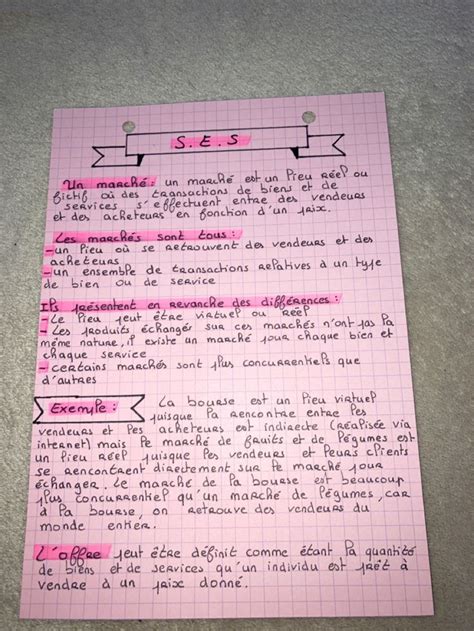 S.E.S
Un marché : un marché est un lieu réel ou
fictif où des transactions de biens et de
services s'effectuent entre des vendeurs
et des acheteurs en fonction d'un prix.
Les marchés sont tous :
-un lieu où se retrouvent des vendeurs et des
acheteurs
-un ensemble de transactions relatives à un type
de bien ou de service
Ils présentent en revanche des différences :
-Le lieu peut être virtuel ou réel
- Les produits échangés sur ces marchés n'ont pas la
même nature, il existe un marché pour chaque bien et
chaque service
- certains marchés sont plus concurrentiels que
d'autres
Exemple : La bourse est un lieu virtuel
puisque la rencontre entre les
vendeurs et les acheteurs est indirecte (réalisée via
internet) mais le marché de fruits et de légumes est
un lieu réel puisque les vendeurs et leurs clients
se rencontrent directement sur le marché pour
échanger. Le marché de la bourse est beaucoup
plus concurrentiel qu'un marché de légumes, car
à la bourse, on retrouve des vendeurs du
monde entier.
L'offre peut être définit comme étant la quantité
de biens et de services qu'un individu est prêt à
vendre à un prix donné.